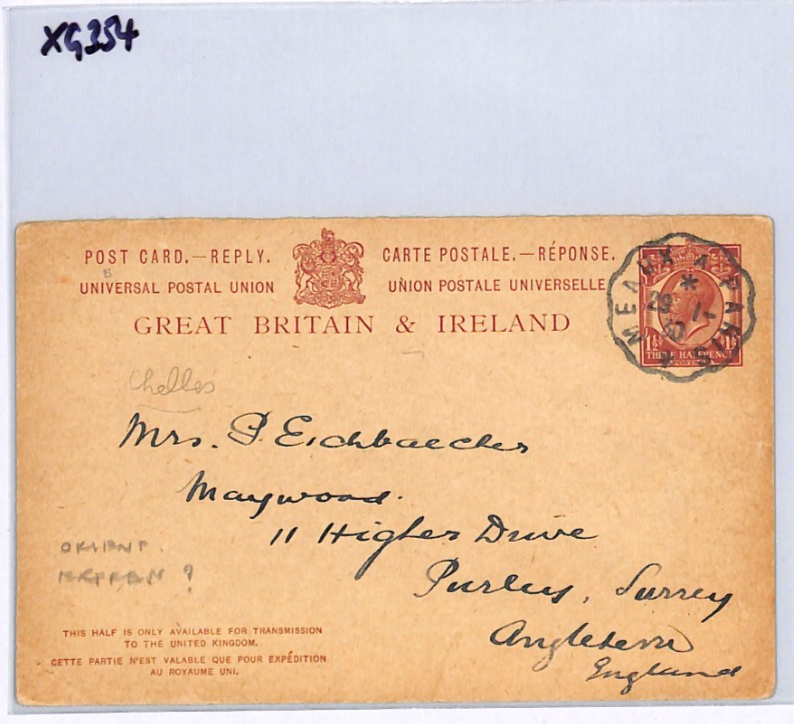 XG354
POST CARD.—REPLY.
CARTE POSTALE.—RÉPONSE.
B
UNIVERSAL POSTAL UNION
UNION POSTALE UNIVERSELLE
GREAT BRITAIN & IRELAND
MEAUX A PARIS
*
29
1½
1½
THREE HALFPENCE
POSTAGE
Chelles
Mrs. P. Eichbaecher
Maywood.
11 Higher Drive
Purley, Surrey
Angleterre
England
ORIENT
?
THIS HALF IS ONLY AVAILABLE FOR TRANSMISSION
TO THE UNITED KINGDOM.
CETTE PARTIE N'EST VALABLE QUE POUR EXPÉDITION
AU ROYAUME UNI.